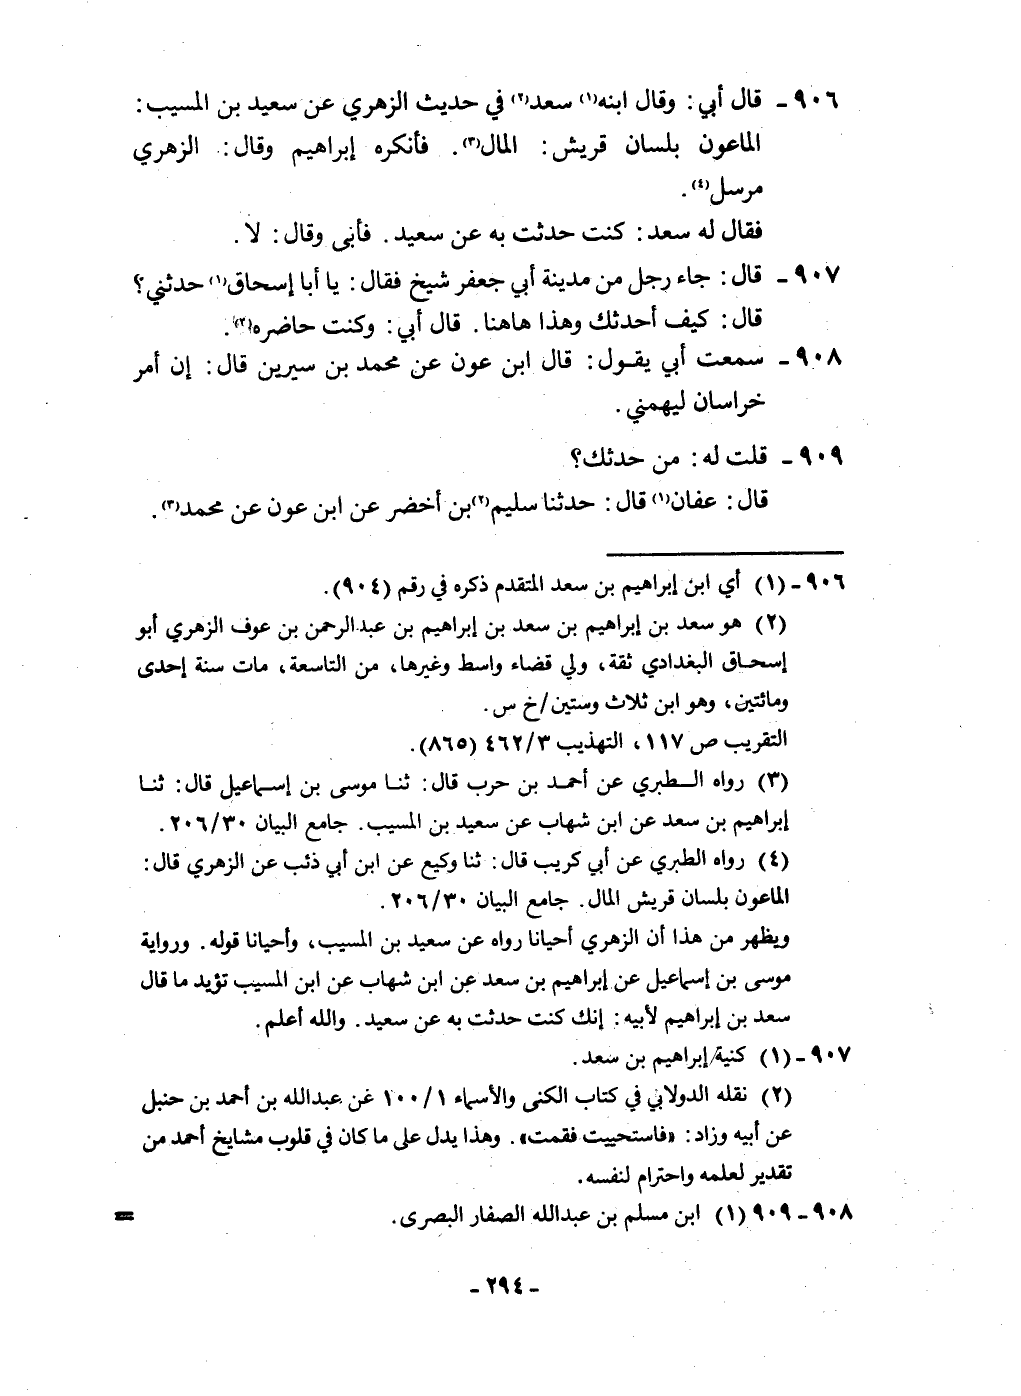 ٩٠٦ ـ قال أبي: وقال ابنه(١) سعد(٢) في حديث الزهري عن سعيد بن المسيب:
الماعون بلسان قريش: المال(٣). فأنكره إبراهيم وقال: الزهري
مرسل(٤).
فقال له سعد: كنت حدثت به عن سعيد. فأبى وقال: لا.
٩٠٧ ـ قال: جاء رجل من مدينة أبي جعفر شيخ فقال: يا أبا إسحاق(١) حدثني؟
قال: كيف أحدثك وهذا هاهنا. قال أبي: وكنت حاضره(٢).
٩٠٨ ـ سمعت أبي يقول: قال ابن عون عن محمد بن سيرين قال: إن أمر
خراسان ليهمني.
٩٠٩ ـ قلت له: من حدثك؟
قال: عفان(١) قال: حدثنا سليم(٢) بن أخضر عن ابن عون عن محمد(٣).
٩٠٦ ـ (١) أي ابن إبراهيم بن سعد المتقدم ذكره في رقم (٩٠٤).
(٢) هو سعد بن إبراهيم بن سعد بن إبراهيم بن عبدالرحمن بن عوف الزهري أبو
إسحاق البغدادي ثقة، ولي قضاء واسط وغيرها، من التاسعة، مات سنة إحدى
ومائتين، وهو ابن ثلاث وستين/خ س.
التقريب ص ١١٧، التهذيب ٤٦٢/٣ (٨٦٥).
(٣) رواه الطبري عن أحمد بن حرب قال: ثنا موسى بن إسماعيل قال: ثنا
إبراهيم بن سعد عن ابن شهاب عن سعيد بن المسيب. جامع البيان ٢٠٦/٣٠.
(٤) رواه الطبري عن أبي كريب قال: ثنا وكيع عن ابن أبي ذئب عن الزهري قال:
الماعون بلسان قريش المال. جامع البيان ٢٠٦/٣٠.
ويظهر من هذا أن الزهري أحيانا رواه عن سعيد بن المسيب، وأحيانا قوله. ورواية
موسى بن إسماعيل عن إبراهيم بن سعد عن ابن شهاب عن ابن المسيب تؤيد ما قال
سعد بن إبراهيم لأبيه: إنك كنت حدثت به عن سعيد. والله أعلم.
٩٠٧ ـ (١) كنية/إبراهيم بن سعد.
(٢) نقله الدولابي في كتاب الكنى والأسماء ١٠٠/١ عن عبدالله بن أحمد بن حنبل
عن أبيه وزاد: «فاستحييت فقمت». وهذا يدل على ما كان في قلوب مشايخ أحمد من
تقدير لعلمه واحترام لنفسه.
٩٠٨ ـ ٩٠٩ (١) ابن مسلم بن عبدالله الصفار البصرى. =
ـ ٢٩٤ ـ